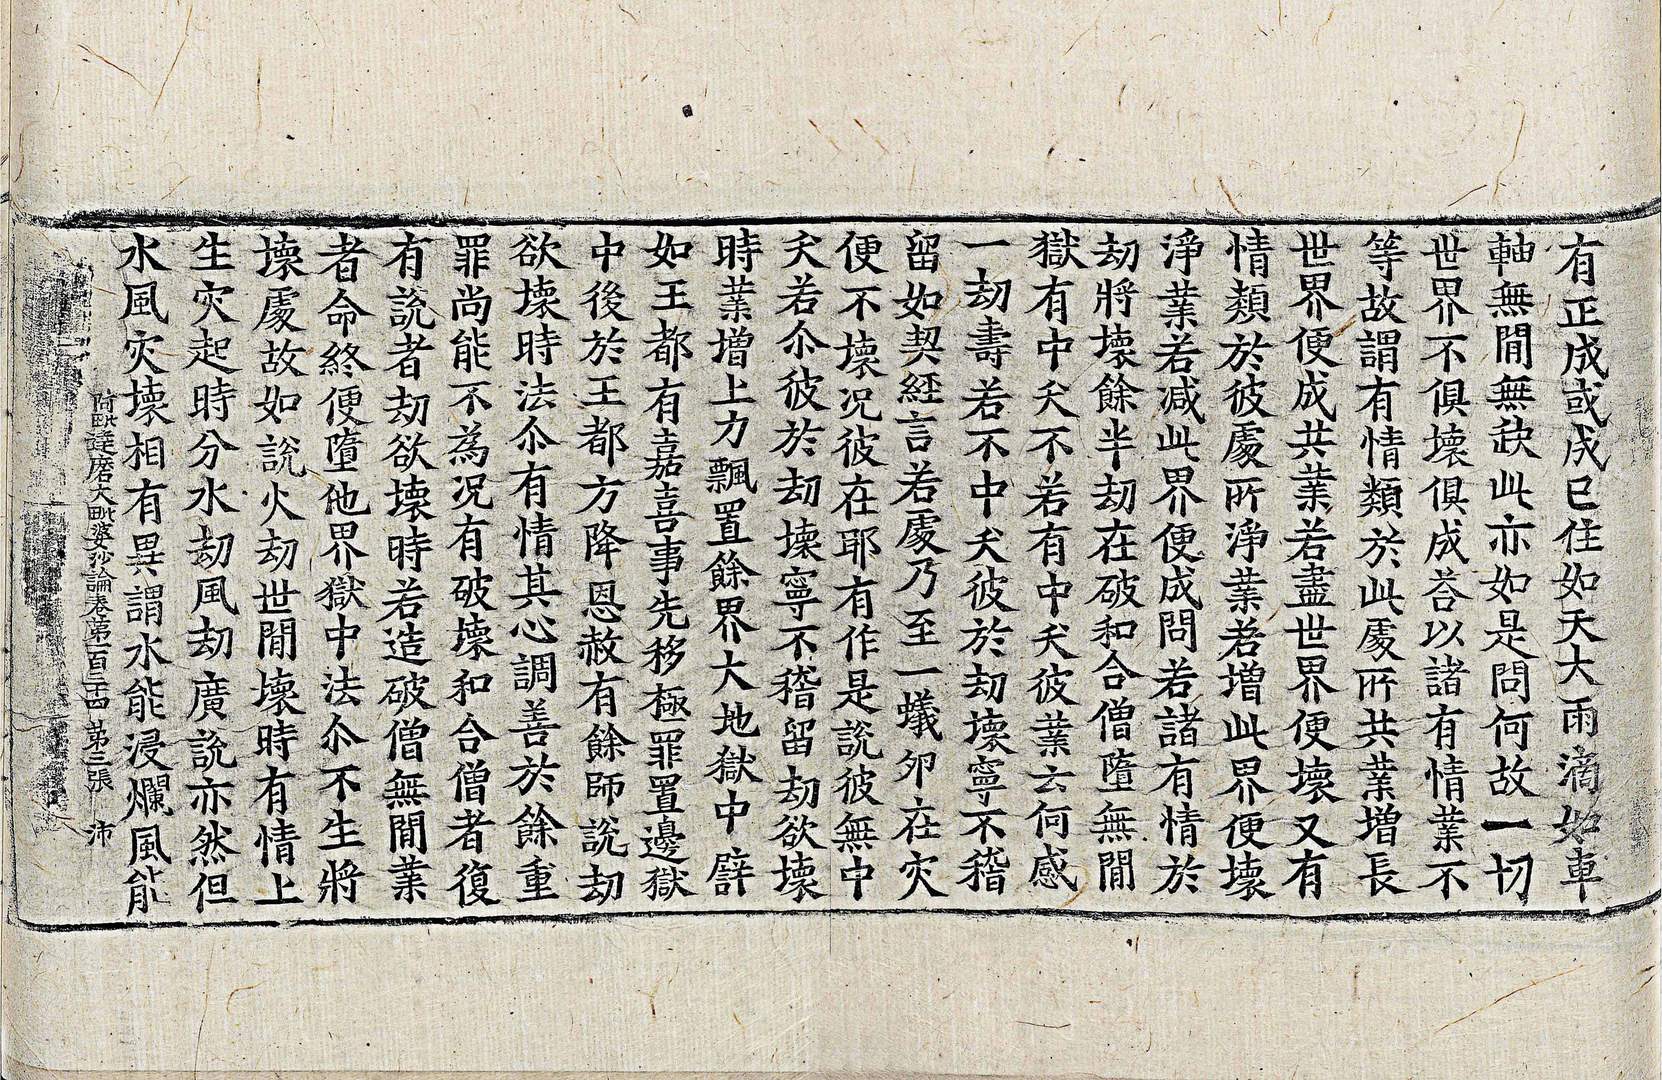 有正成或成已住如天大雨滴如車
軸無間無缺此亦如是問何故一切
世界不俱壞俱成荅以諸有情業不
等故謂有情類於此處所共業增長
世界便成共業若盡世界便壞又有
情類於彼處所淨業若增此界便壞
淨業若減此界便成問若諸有情於
劫將壞餘半劫在破和合僧墮無間
獄有中夭不若有中夭彼業云何感
一劫壽若不中夭彼於劫壞寧不稽
留如契經言若處乃至一蟻卵在灾
便不壞况彼在耶有作是說彼無中
夭若尒彼於劫壞寧不稽留劫欲壞
時業增上力飄置餘界大地獄中辟
如王都有嘉喜事先移極罪置邊獄
中後於王都方降恩赦有餘師說劫
欲壞時法尒有情其心調善於餘重
罪尚能不為况有破壞和合僧者復
有說者劫欲壞時若造破僧無間業
者命終便墮他界獄中法尒不生將
壞處故如說火劫世間壞時有情上
生灾起時分水劫風劫廣說亦然但
水風灾壞相有異謂水能浸爛風能
阿毗達磨大毗婆沙論卷第一百三十四 第三張 沛